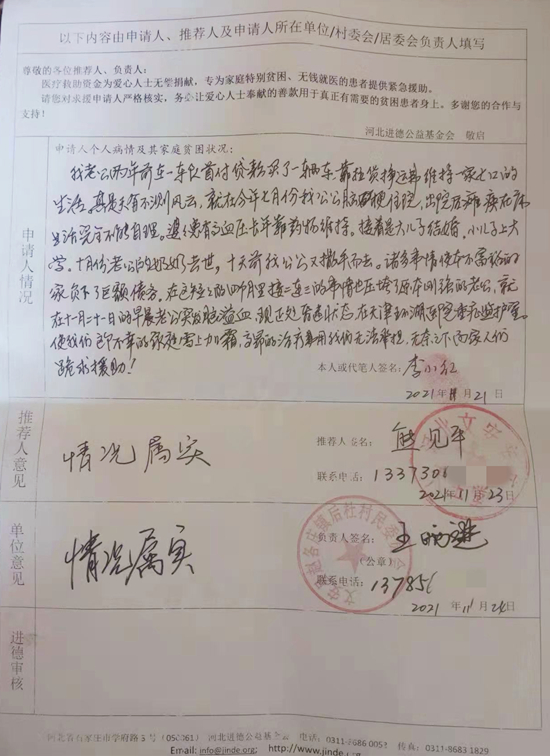 以下内容由申请人、推荐人及申请人所在单位/村委会/居委会负责人填写
尊敬的各位推荐人、负责人：
医疗救助资金为爱心人士无偿捐献，专为家庭特别贫困、无钱就医的患者提供紧急援助。
请您对求援申请人严格核实，务必让爱心人士奉献的善款用于真正有需要的贫困患者身上。多谢您的合作与
支持！
河北进德公益基金会 敬启
申请人情况
申请人个人病情及其家庭贫困状况：
我老公两年前在一车队首付贷款买了一辆车，靠拉货挣运费维持一家七口的
生活。真是天有不测风云，就在今年七月份我公公脑梗住院，出院后瘫痪在床
生活完全不能自理。婆婆患有高血压卡年靠药物维持。接着是大儿子结婚，小儿子上大
学，十月份老公的奶奶去世，十天前我公公又撒手而去。诸多事情使本不富裕的
家负下了巨额债务。在这短短的四个月里接二连三的事情也压垮了原本刚强的老公，就
在十一月二十日的早晨老公突发脑溢血，现正处昏迷状态，在天津环湖医院重症监护室。
使我们即不幸的家庭雪上加霜，高昂的治疗费用我们无法承担，无奈之下两家人们
跪求援助！
本人或代笔人签名：李小红
2021 年 11 月 21
推荐人意见
情况属实
推荐人签名：熊见平
联系电话：1337306
2021年11月23日
单位意见
情况属实
负责人签名：王
（公章）
联系电话：137856
2021 年 11 月 24日
文安县赵各庄镇后杜村民委员会
进德审核
河北省石家庄市学府路 5 号（050061） 河北进德公益基金会 电话：0311-8686 005 传真：0311-8683 1829
Email: info@jinde.org; http://www.jinde